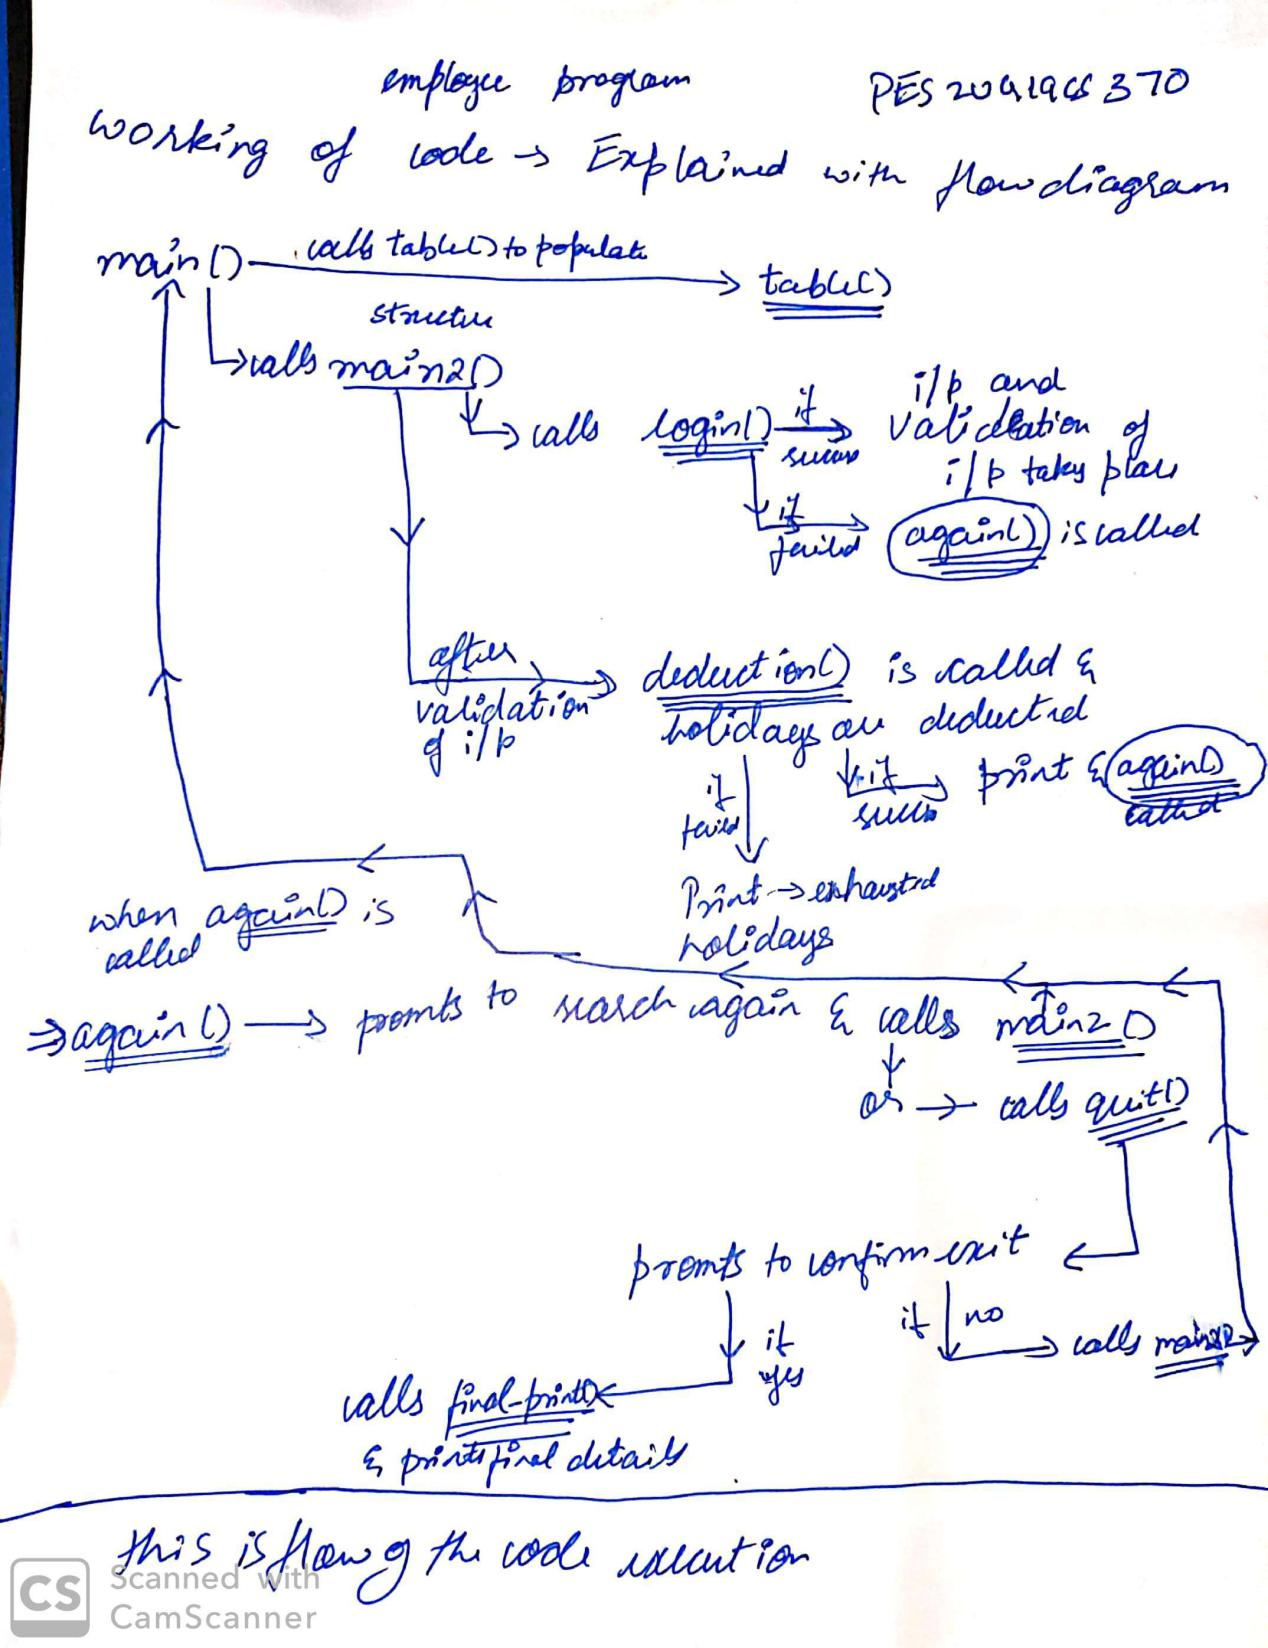 employee program
PES2UG19CS370
working of code → Explained with flow diagram
main() calls table() to populate → table()
structure
→ calls main2()
→ calls login() if success → i/p and validation of i/p takes place
if failed → again() is called
after validation of i/p → deduction() is called &
holidays are deducted
if success → print & again() called
if failed
Print → exhausted
holidays
when again() is
called
⇒ again() → promts to search again & calls main2()
or → calls quit()
promts to confirm exit
if no → calls main2()
if yes
calls final-print()
& prints final details
this is flow of the code execution
CS Scanned with
CamScanner